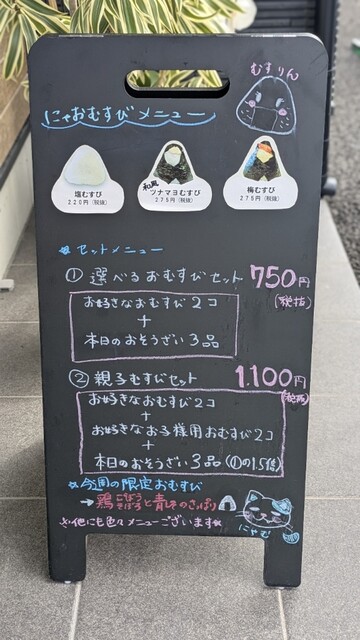 むすりん
にゃおむすびメニュー
塩むすび
220円(税抜)
和風
ツナマヨむすび
275円(税抜)
梅むすび
275円(税抜)
セットメニュー
① 選べるおむすびセット 750円
(税抜)
お好きなおむすび2コ
+
本日のおそうざい3品
② 親子むすびセット 1,100円
(税抜)
お好きなおむすび2コ
+
お好きなお子様用おむすび2コ
+
本日のおそうざい3品(①の1.5倍)
今週の限定おむすび
→鶏ごぼうそぼろと青じそのさっぱり
他にも色々メニューございます
にゃむ